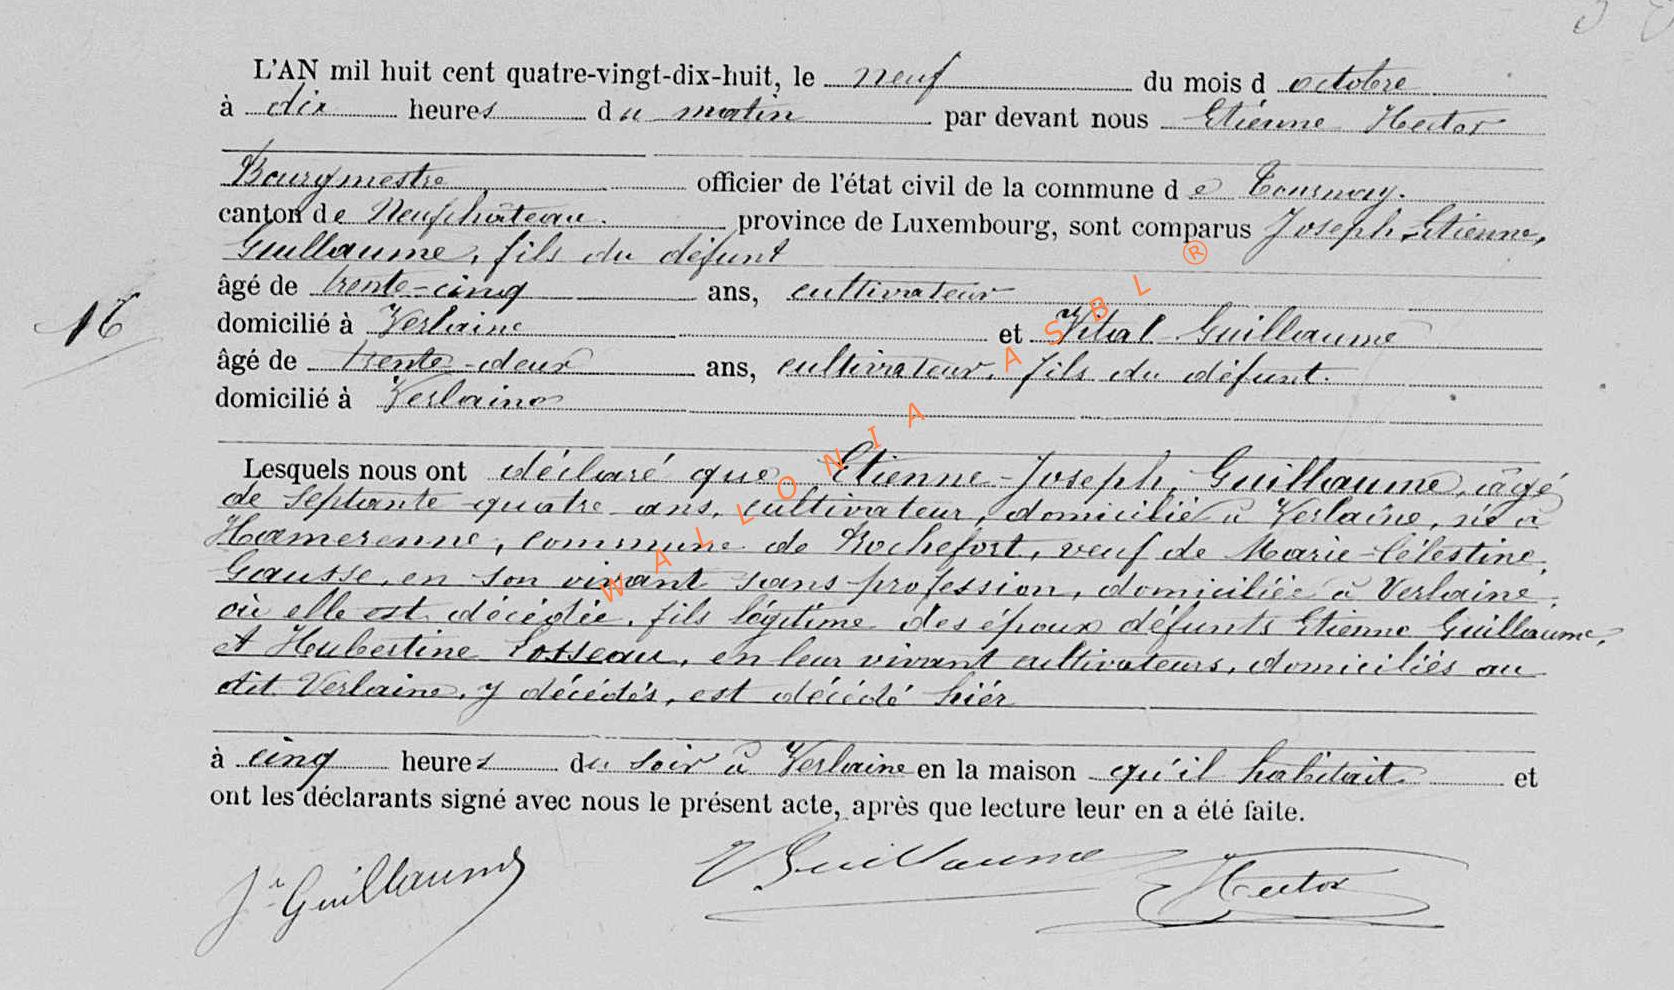 L'AN mil huit cent quatre-vingt-dix-huit, le neuf du mois d octobre
à dix heures du matin par devant nous Etienne Hector
Bourgmestre officier de l'état civil de la commune de Tournay.
canton de Neufchâteau. province de Luxembourg, sont comparus Joseph-Etienne,
Guillaume, fils du défunt
âgé de trente-cinq ans, cultivateur
16
domicilié à Verlaine et Vital Guillaume
âgé de trente-deux ans, cultivateur, fils du défunt.
domicilié à Verlaine
Lesquels nous ont déclaré que Etienne-Joseph, Guillaume, âgé
de septante-quatre ans, cultivateur, domicilié à Verlaine, né à
Hamerenne, commune de Rochefort, veuf de Marie-Célestine,
Gausse, en son vivant sans profession, domiciliée à Verlaine,
où elle est décédée, fils légitime des époux défunts Etienne Guillaume,
et Hubertine Losseau, en leur vivant cultivateurs, domiciliés au
dit Verlaine, y décédés, est décédé hier
à cinq heures du soir à Verlaine en la maison qu'il habitait et
ont les déclarants signé avec nous le présent acte, après que lecture leur en a été faite.
Jh Guillaume V Guillaume Hector
WALLONIA ASBL ®